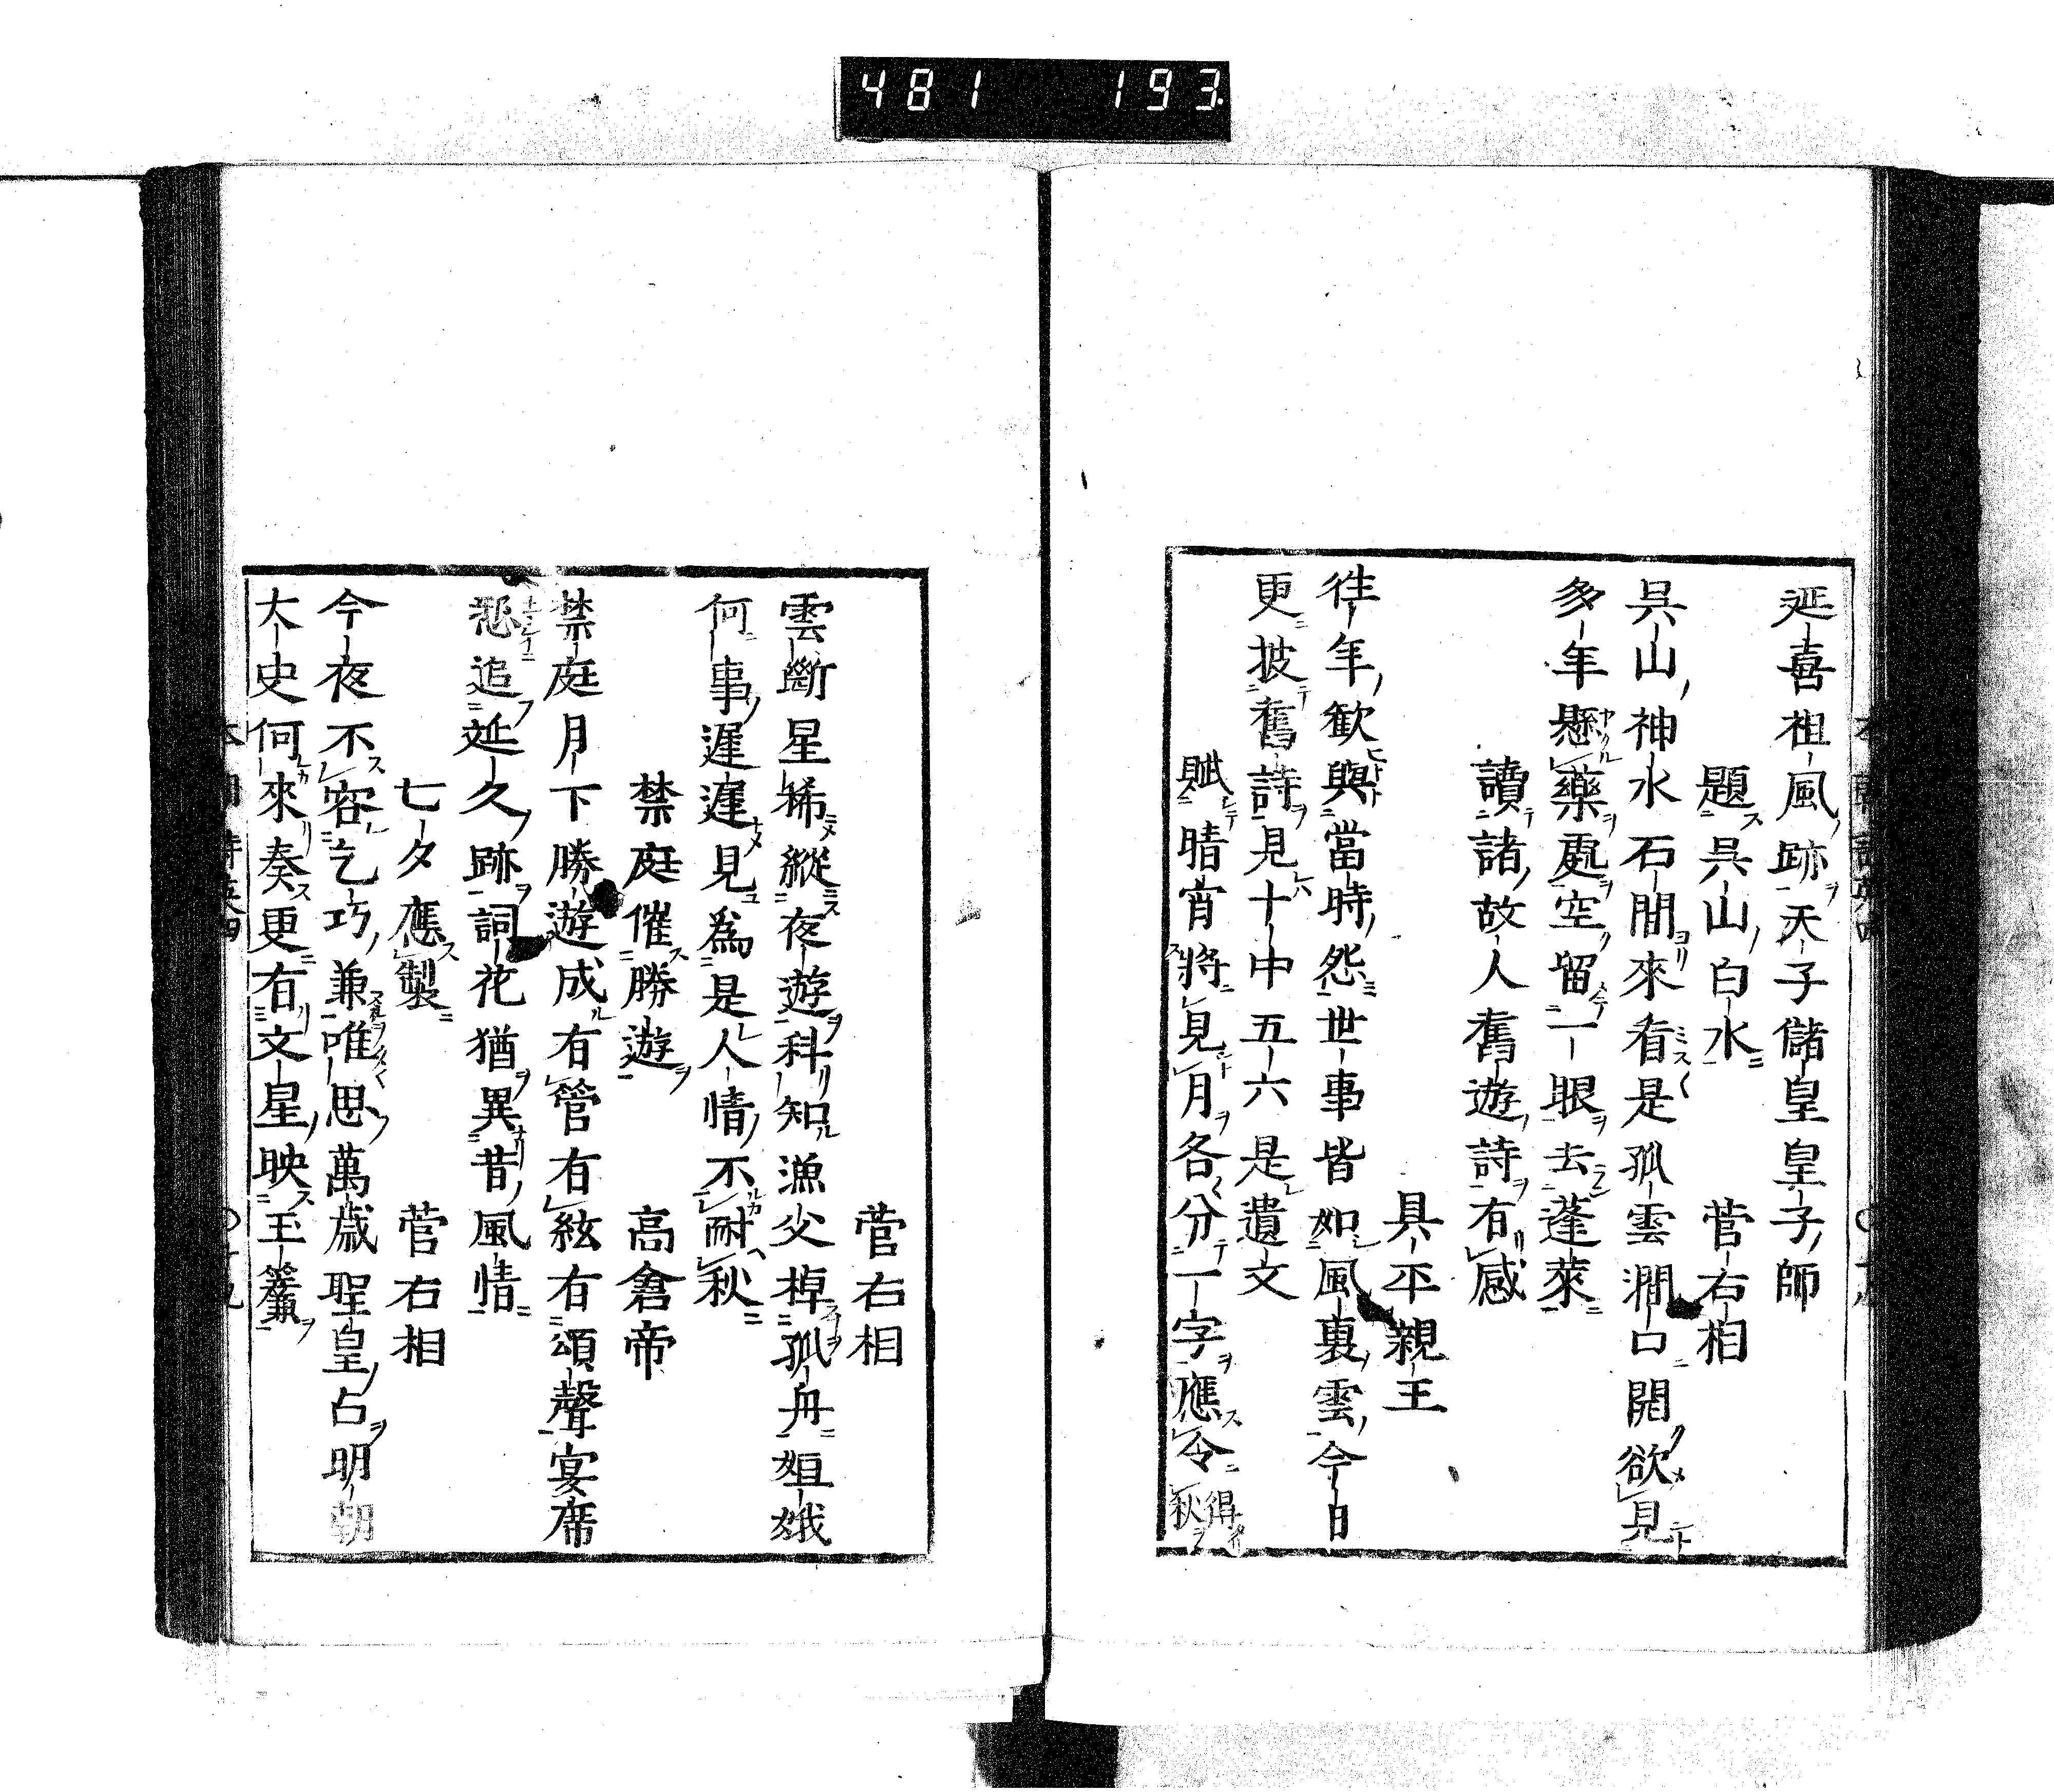 481 193
延喜祖風跡天子儲皇皇子師
題吳山白水 菅右相
吳山神水石間來看是孤雲澗口開欲見
多年懸藥處空留一眼去蓬萊
讀諸故人舊遊詩有感
具平親王
徃年歓與當時怨世事皆如風裏雲今日
更披舊詩見十中五六是遺文
賦晴宵將見月各分一字應令 得秋
菅右相
雲斷星稀縱夜遊科知漁父棹孤舟姮娥
何事遲遲見為是人情不耐秋
禁庭催勝遊 高倉帝
禁庭月下勝遊成有管有絃有頌聲宴席
追延久跡詞花猶異昔風情
七夕應製 菅右相
今夜不容乞巧兼唯思萬歳聖皇占明朝
大史何來奏更有文星映玉簾